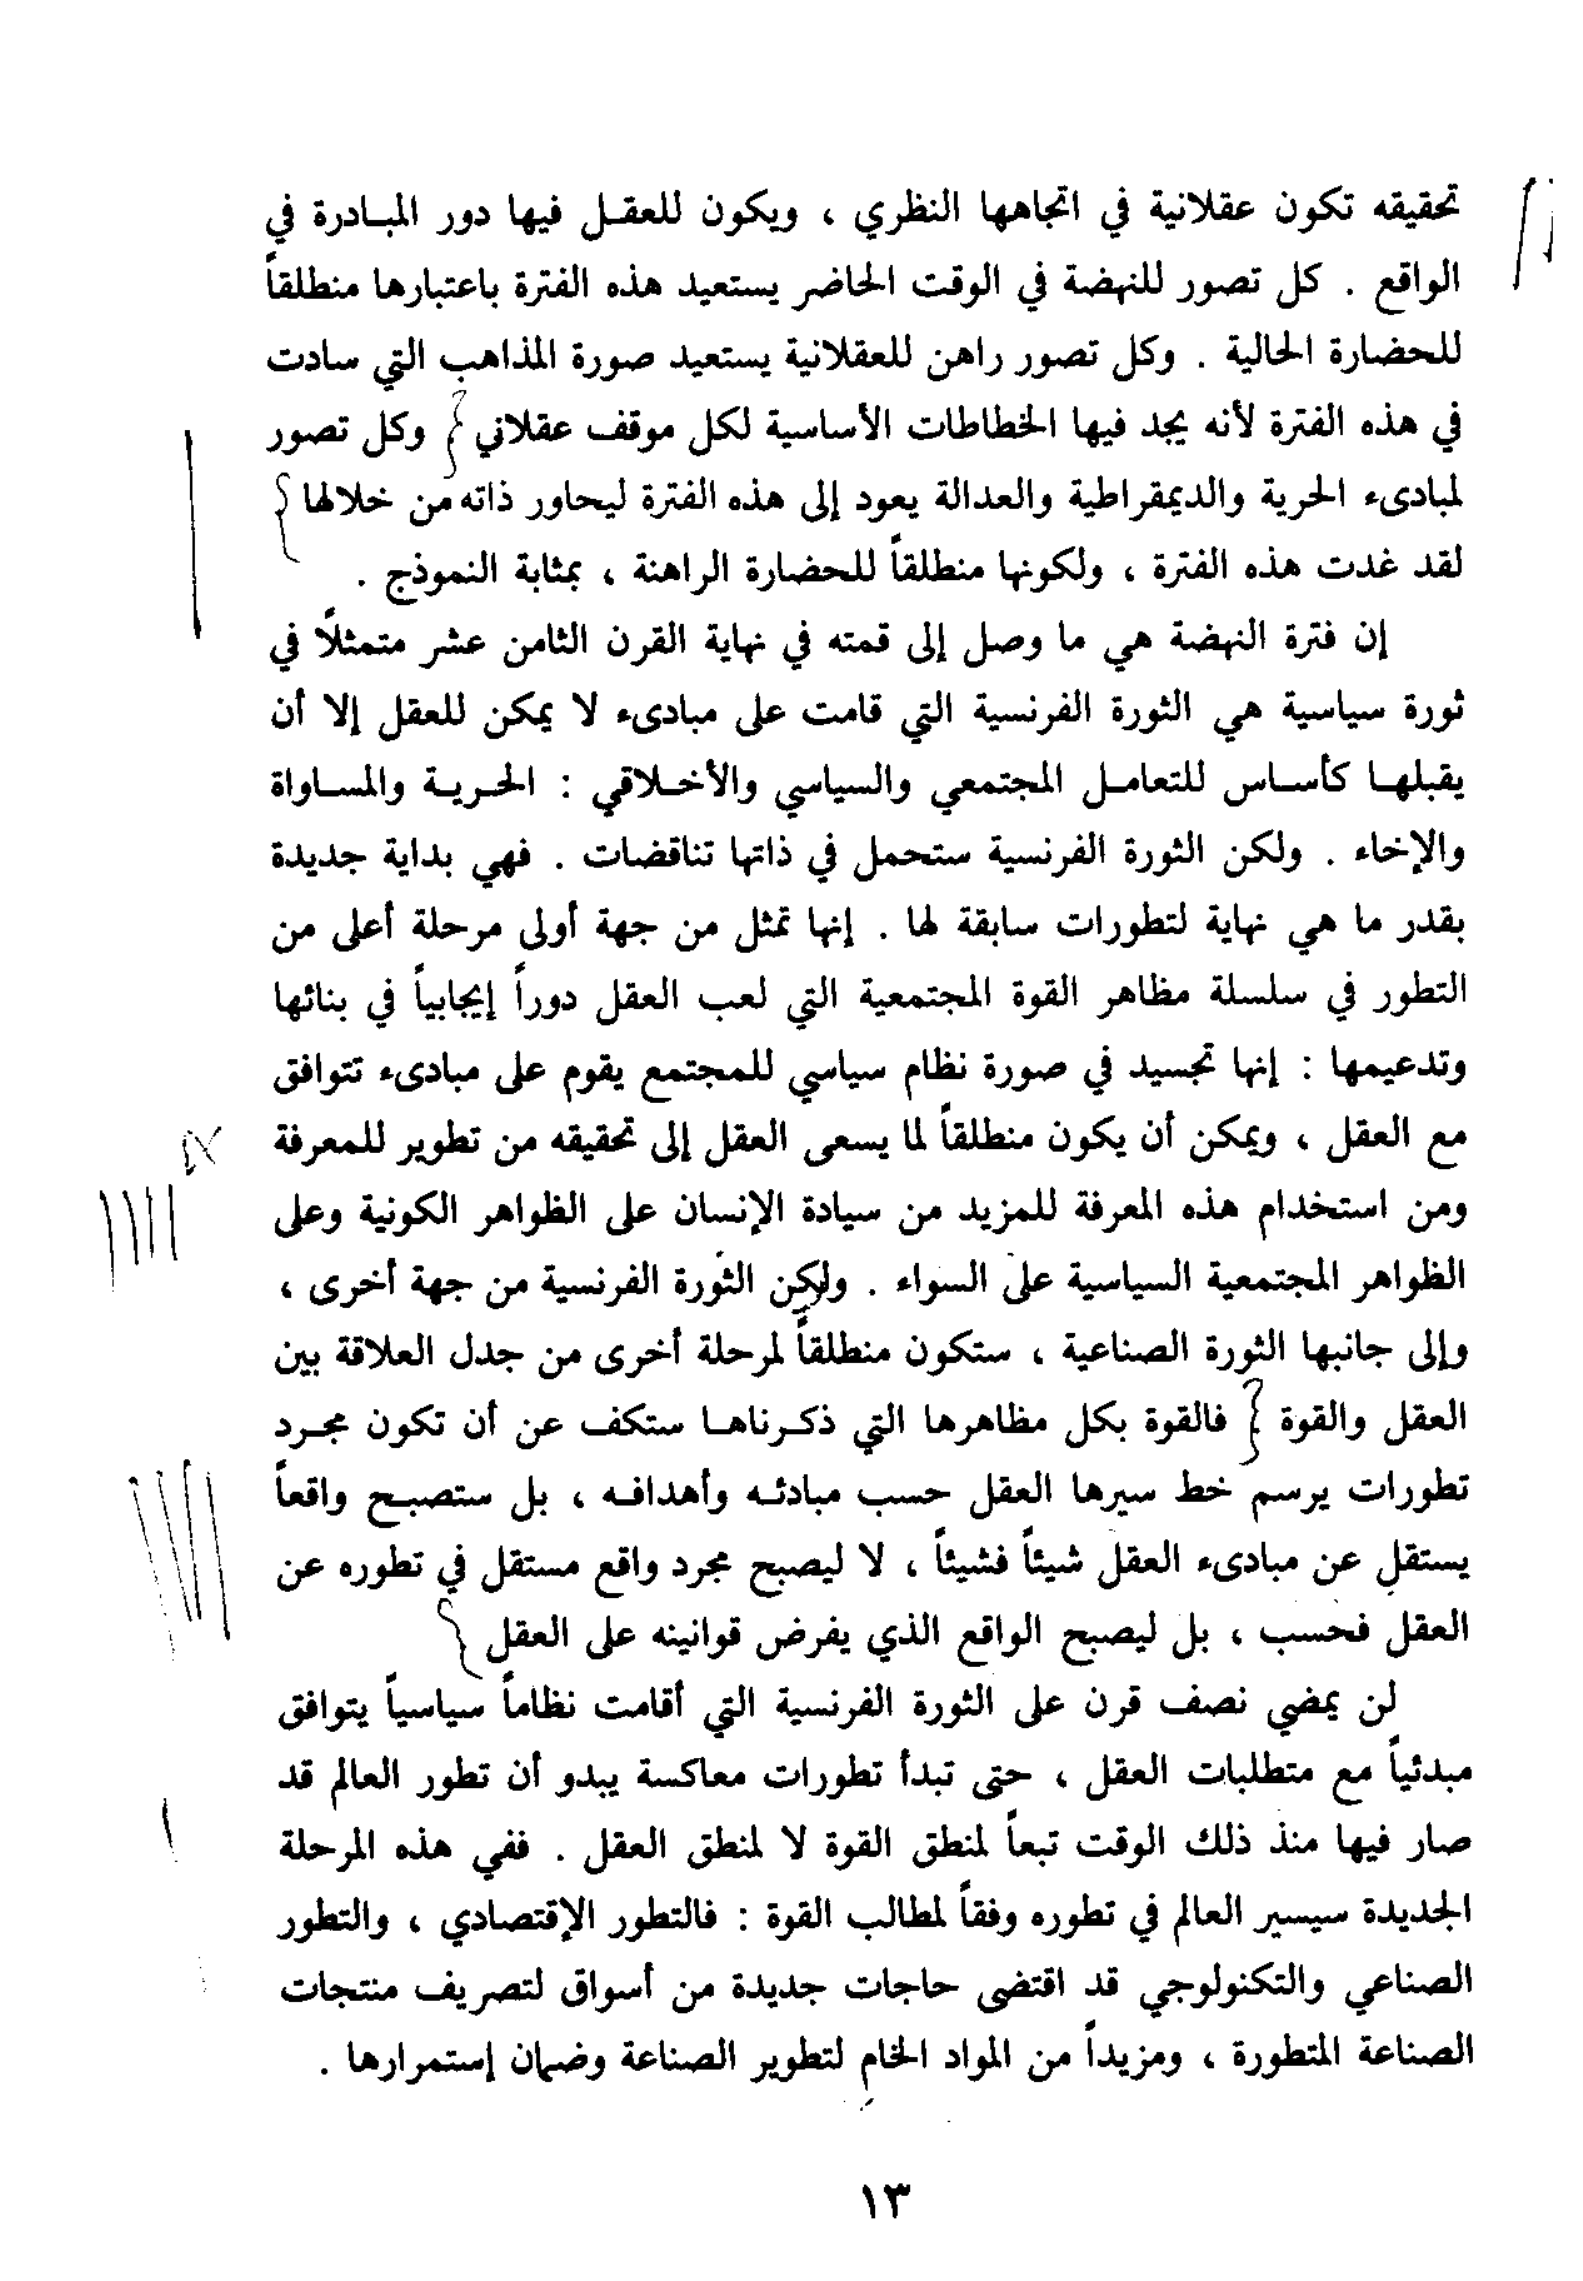 تحقيقه تكون عقلانية في اتجاهها النظري ، ويكون للعقـل فيها دور المبـادرة في
الواقع . كل تصور للنهضة في الوقت الحاضر يستعيد هذه الفترة باعتبارها منطلقاً
للحضارة الحالية . وكل تصور راهن للعقلانية يستعيد صورة المذاهب التي سادت
في هذه الفترة لأنه يجد فيها الخطاطات الأساسية لكل موقف عقلاني وكل تصور
لمبادىء الحرية والديمقراطية والعدالة يعود إلى هذه الفترة ليحاور ذاته من خلالها
لقد غدت هذه الفترة ، ولكونها منطلقاً للحضارة الراهنة ، بمثابة النموذج .
إن فترة النهضة هي ما وصل إلى قمته في نهاية القرن الثامن عشر متمثلاً في
ثورة سياسية هي الثورة الفرنسية التي قامت على مبادىء لا يمكن للعقل إلا أن
يقبلهـا كأسـاس للتعامـل المجتمعي والسياسي والأخـلاقي : الحـريـة والمسـاواة
والإخاء . ولكن الثورة الفرنسية ستحمل في ذاتها تناقضات . فهي بداية جديدة
بقدر ما هي نهاية لتطورات سابقة لها . إنها تمثل من جهة أولى مرحلة أعلى من
التطور في سلسلة مظاهر القوة المجتمعية التي لعب العقل دوراً إيجابياً في بنائها
وتدعيمها : إنها تجسيد في صورة نظام سياسي للمجتمع يقوم على مبادىء تتوافق
مع العقل ، ويمكن أن يكون منطلقاً لما يسعى العقل إلى تحقيقه من تطوير للمعرفة
ومن استخدام هذه المعرفة للمزيد من سيادة الإنسان على الظواهر الكونية وعلى
الظواهر المجتمعية السياسية على السواء . ولكن الثورة الفرنسية من جهة أخرى ،
وإلى جانبها الثورة الصناعية ، ستكون منطلقاً لمرحلة أخرى من جدل العلاقة بين
العقل والقوة فالقوة بكل مظاهرها التي ذكـرناهـا ستكف عن أن تكون مجـرد
تطورات يرسم خط سيرها العقل حسب مبادئـه وأهدافـه ، بل ستصبـح واقعاً
يستقل عن مبادىء العقل شيئاً فشيئاً ، لا ليصبح مجرد واقع مستقل في تطوره عن
العقل فحسب ، بل ليصبح الواقع الذي يفرض قوانينه على العقل
لن يمضي نصف قرن على الثورة الفرنسية التي أقامت نظاماً سياسياً يتوافق
مبدئياً مع متطلبات العقل ، حتى تبدأ تطورات معاكسة يبدو أن تطور العالم قد
صار فيها منذ ذلك الوقت تبعاً لمنطق القوة لا لمنطق العقل . ففي هذه المرحلة
الجديدة سيسير العالم في تطوره وفقاً لمطالب القوة : فالتطور الإقتصادي ، والتطور
الصناعي والتكنولوجي قد اقتضى حاجات جديدة من أسواق لتصريف منتجات
الصناعة المتطورة ، ومزيداً من المواد الخام لتطوير الصناعة وضمان إستمرارها .
١٣